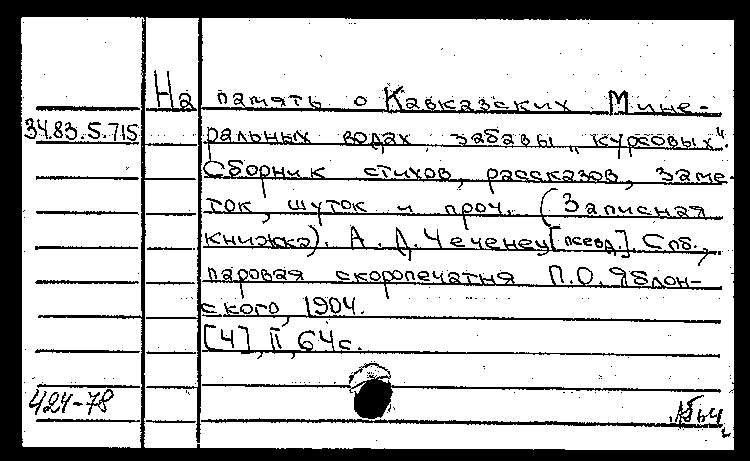 На память о Кавказских Мине-
34.83.5.715 ральных водах забавы „курсовых".
Сборник стихов, рассказов, заме-
ток, шуток и проч. (Записная
книжка). А. Д. Чеченец [псевд]. Спб.,
паровая скоропечатня П.О. Яблон-
ского, 1904.
[4], II, 64 с.
424-78